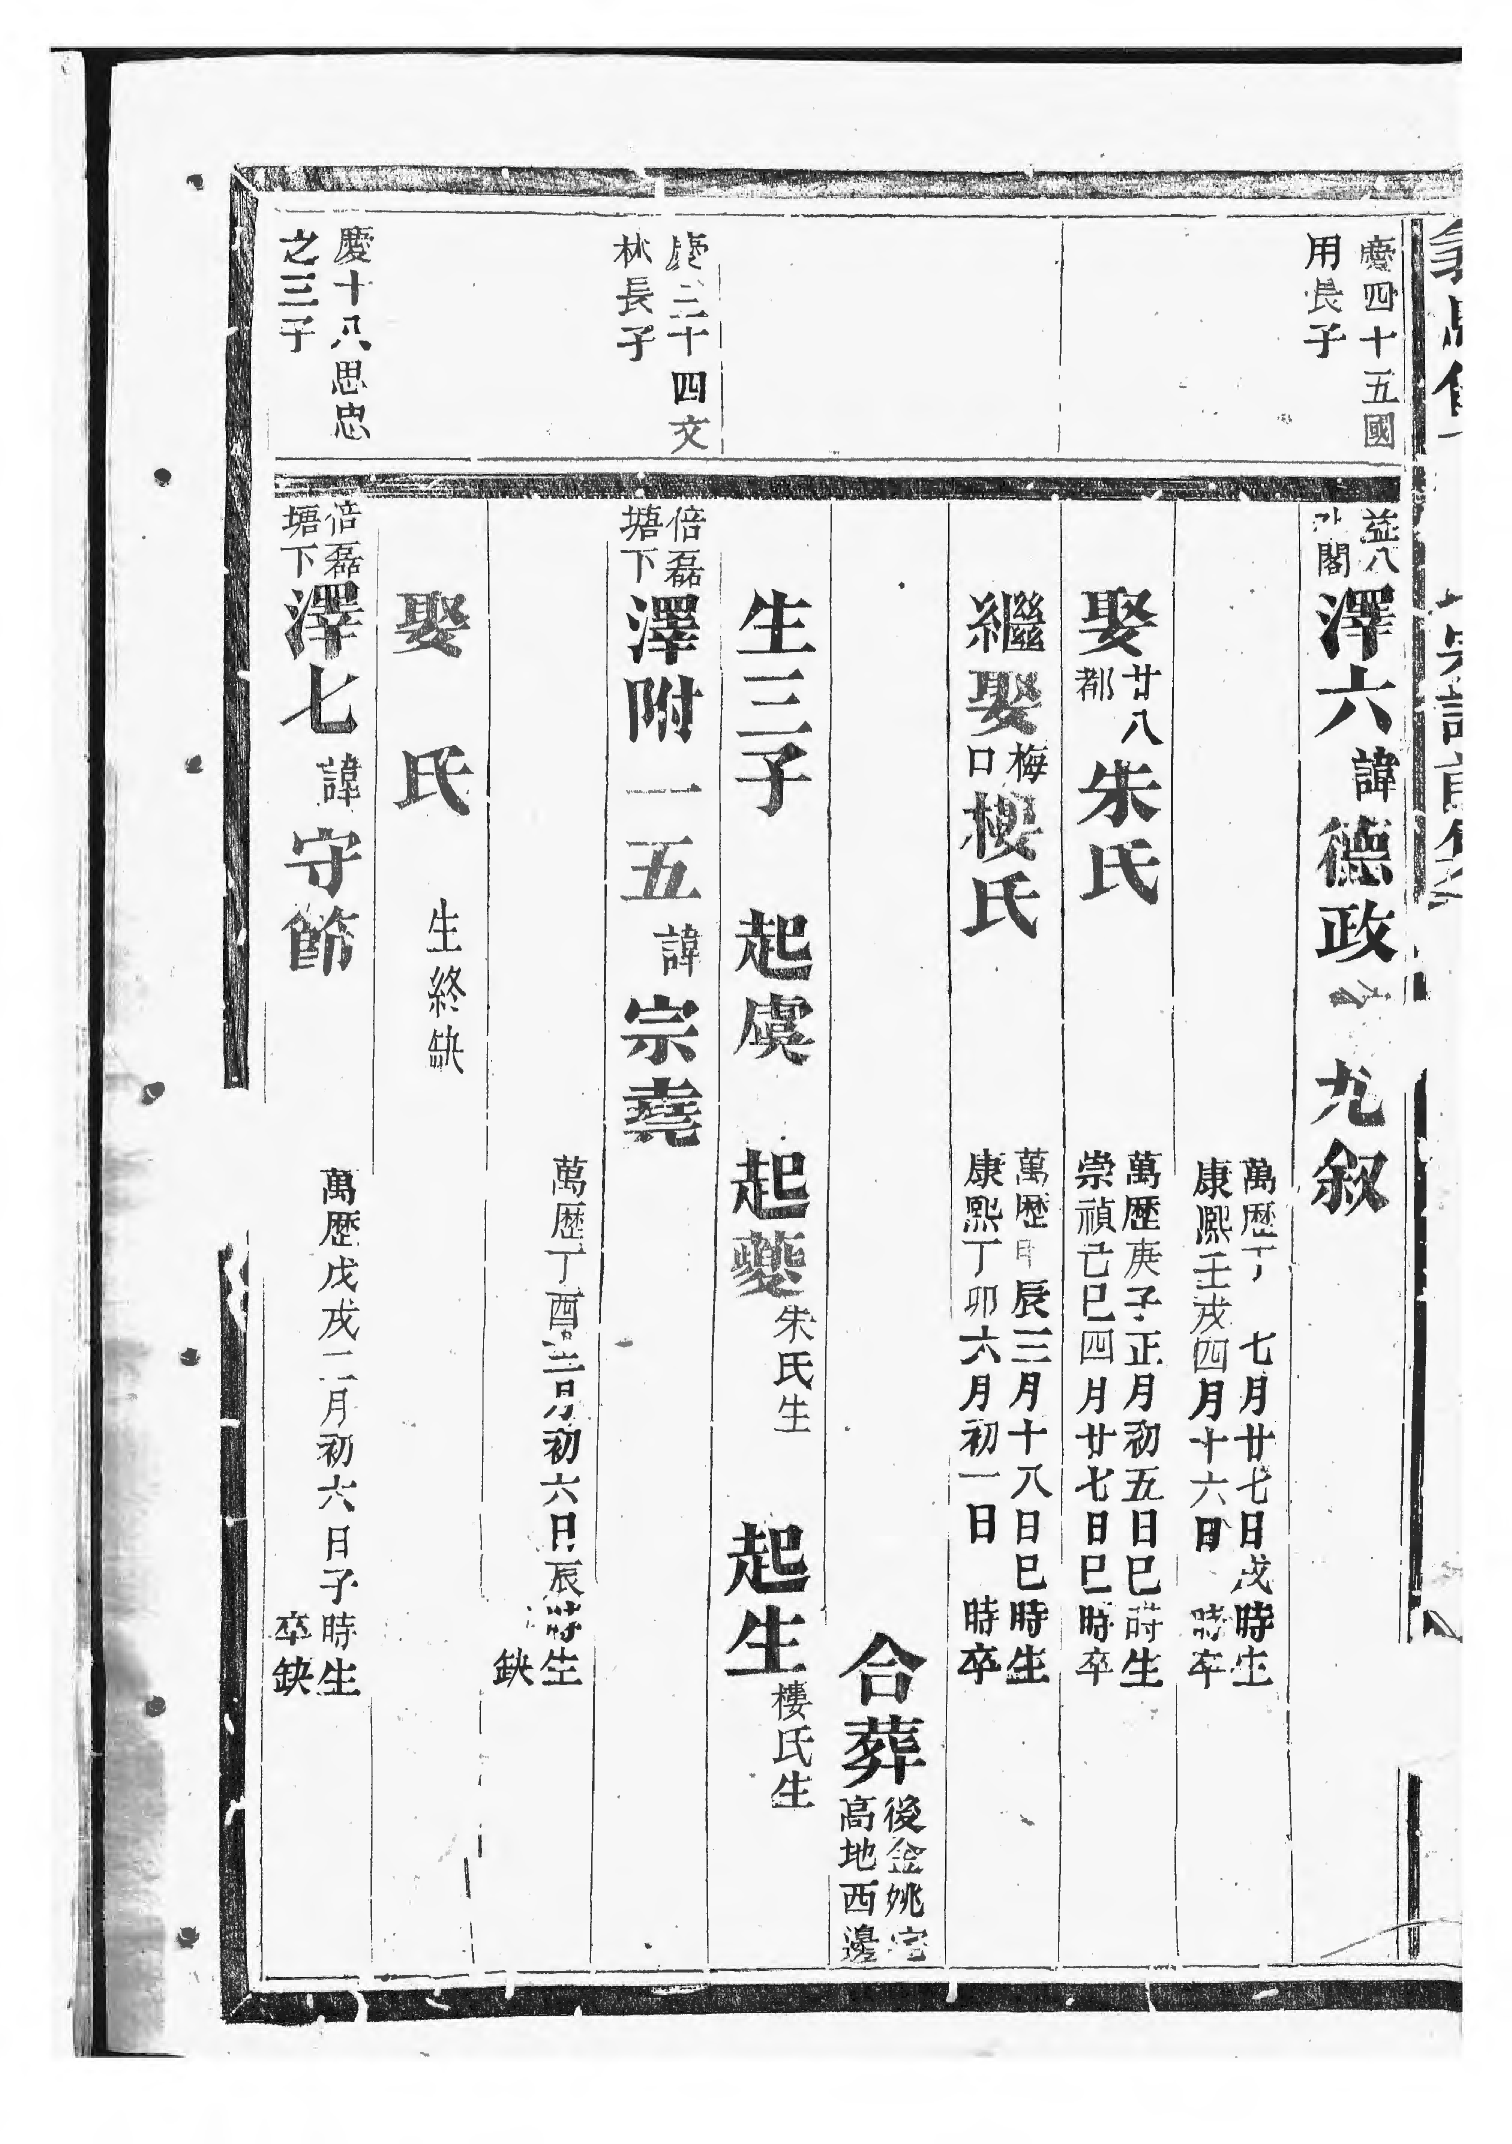 慶四十五國
用長子
益八
閣
澤六諱德政
九叙
萬歷丁
七月廿七日戌時生
康熙壬戌四月十六日
時卒
娶
廿八
都
朱氏
萬歷庚子正月初五日巳時生
崇禎己巳四月廿七日巳時卒
繼娶
梅
口
樓氏
萬歷甲辰三月十八日巳時生
康熙丁卯六月初一日
時卒
合葬
後金姚宅
高地西邊
生三子
起虞
起夔
朱氏生
起生
樓氏生
慶三十四文
林長子
倍磊
塘下
澤附一五諱宗堯
萬歷丁酉
月初六日辰時生
缺
娶
氏
生終缺
慶十八思忠
之三子
倍磊
塘下
澤七諱守節
萬歷戊戌二月初六日子時生
卒缺